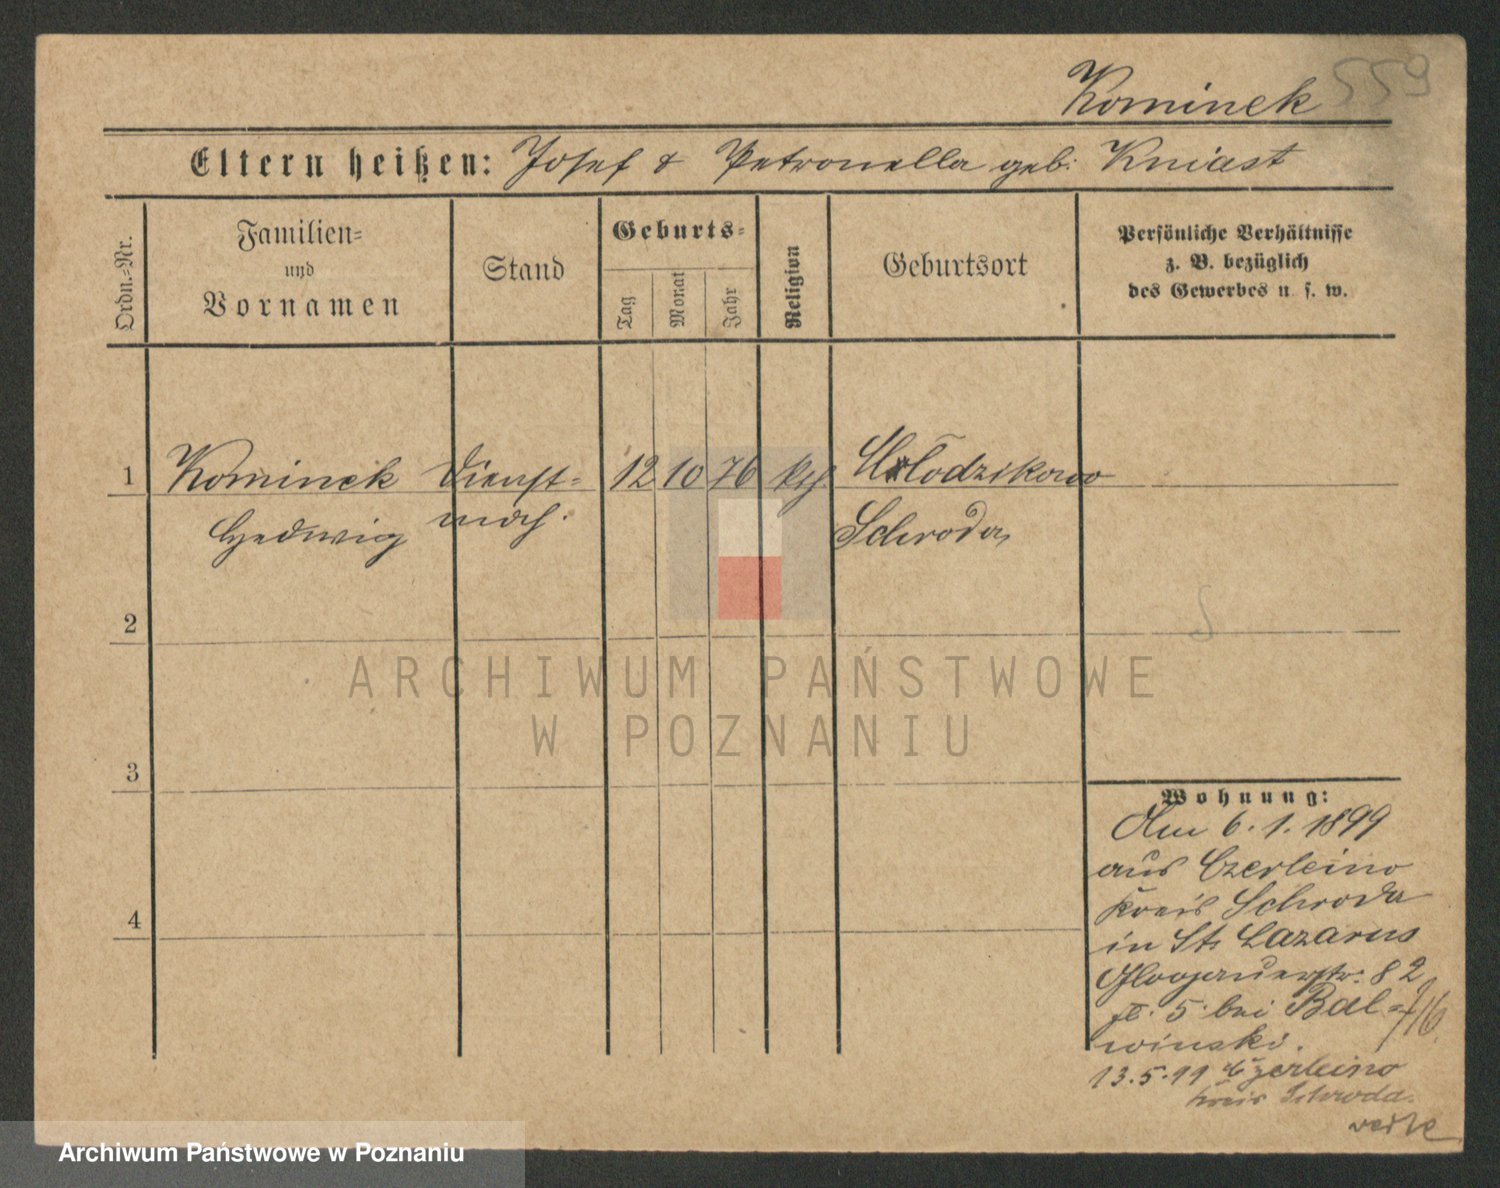 559
Kominek
Eltern heißen: Josef & Petronella geb. Kniast
Ordn.=Nr.
Familien=
und
Vornamen
Stand
Geburts=
Tag
Monat
Jahr
Religion
Geburtsort
Persönliche Verhältnisse
z. B. bezüglich
des Gewerbes u. s. w.
1 Kominek Dienst= 12 10 76 kth. Wlodzikowo
Hedwig mdch. Schroda
2
3
4
Wohnung:
Am 6.1.1899
aus Czerleino
Kreis Schroda
in St. Lazarus
Glogauerstr. 82
bei Bal=
winski.
7/6
13.5.99 Czerleino
Kreis Schroda.
ARCHIWUM PAŃSTWOWE
W POZNANIU
Archiwum Państwowe w Poznaniu